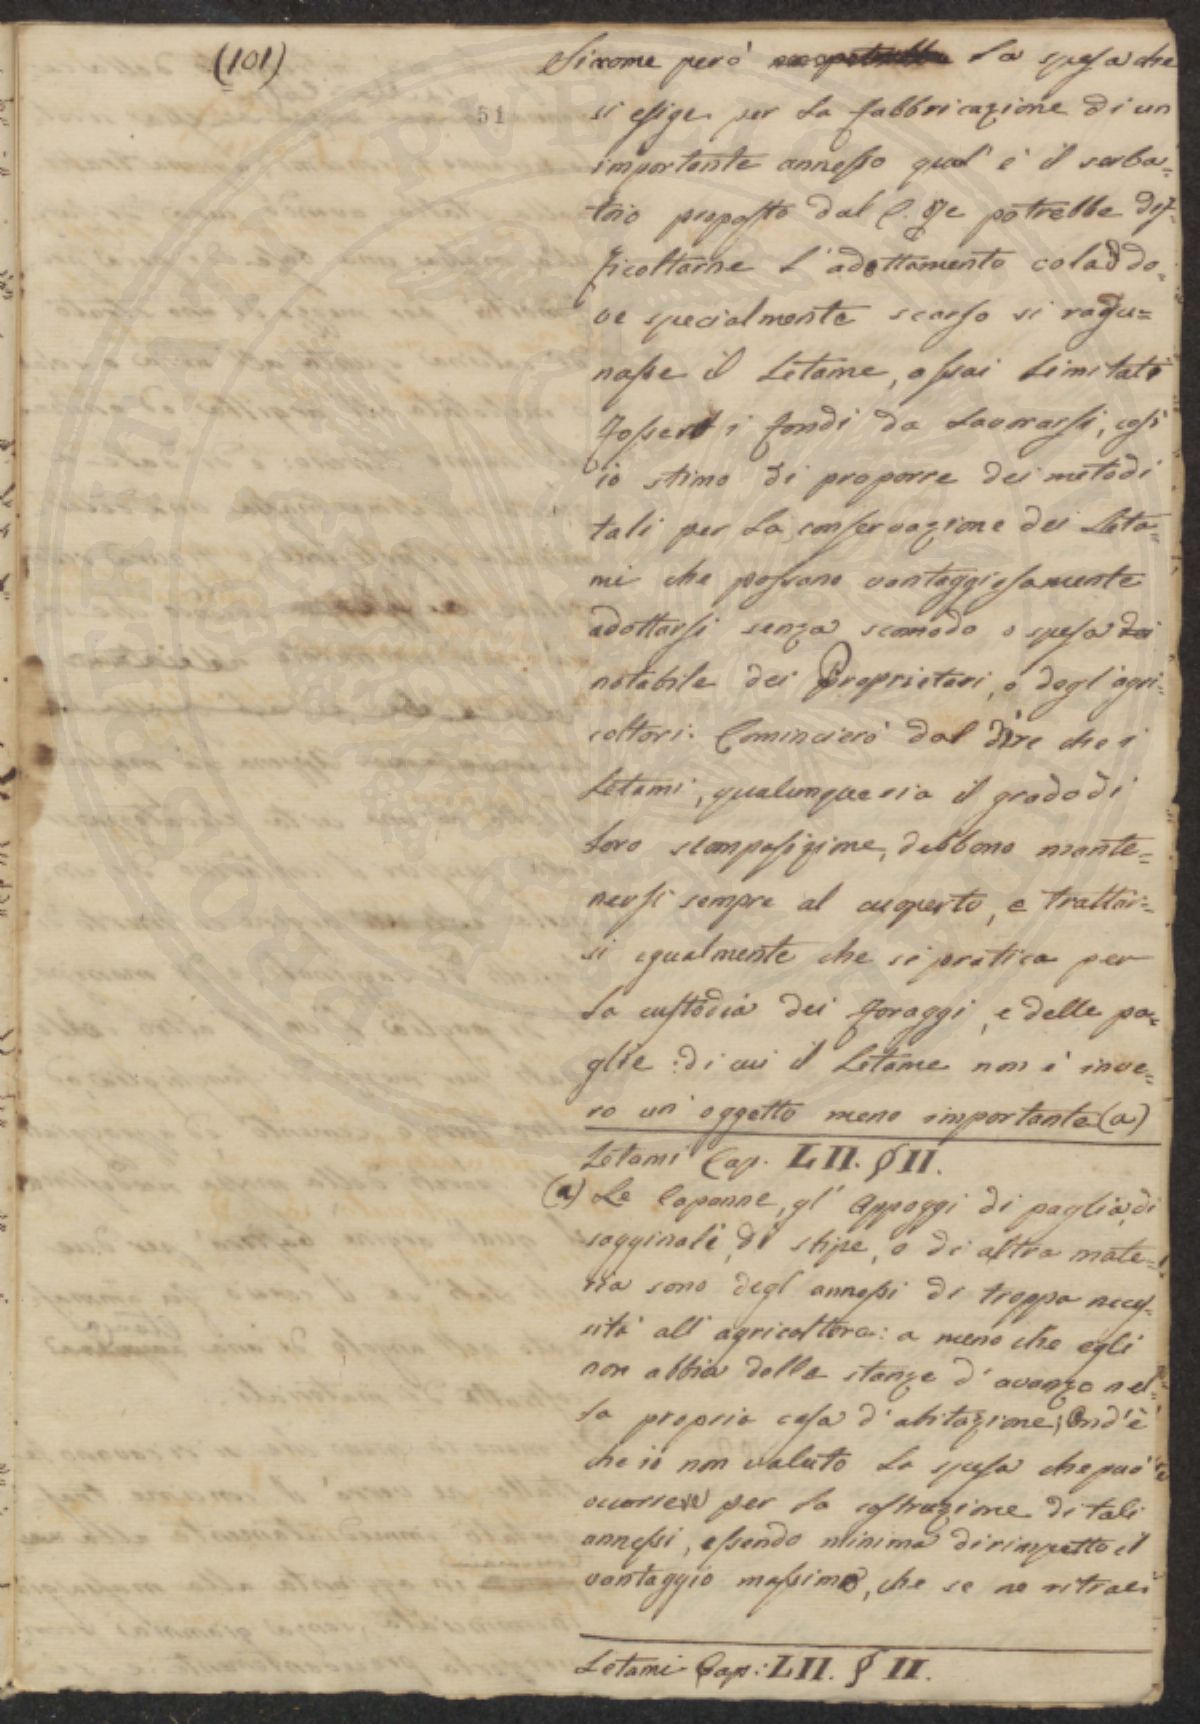 (101)
51
Sicome però la spesa che
si esige per la fabbricazione di un
importante annesso qual' è il serba=
toio proposto dal C. Re potrebbe dif=
ficoltarne l'adottamento coladdo=
ve specialmente scarso si ragu=
nasse il Letame, assai limitati
fossero i fondi da lavorarsi, così
io stimo di proporre dei metodi
tali per la conservazione dei Leta=
mi che possano vantaggiosamente
adottarsi senza scomodo o spesa
notabile dei Proprietari, o degl'agri=
coltori. Comincierò dal dire che i
Letami, qualunque sia il grado di
loro scomposizione, debbono mante=
nersi sempre al cuoperto, e trattar=
si egualmente che si pratica per
la custodia dei foraggi, e delle pa=
glie: di cui il Letame non è inve=
ro un' oggetto meno importante (a)
Letami Cap. LII. § II.
(a) Le Capanne, gl' Appoggi di paglia, di
sagginali, di stipe, o di altra mate=
ria sono degl' annessi di troppa neces=
sità all' agricoltore: a meno che egli
non abbia delle stanze d' avanzo nel=
la propria casa d' abitazione; Ond' è
che io non valuto la spesa che può
ocorrere per la costruzione di tali
annessi, essendo minima dirimpetto il
vantaggio massimo, che se ne ritrae:
Letami Cap: LII. § II.